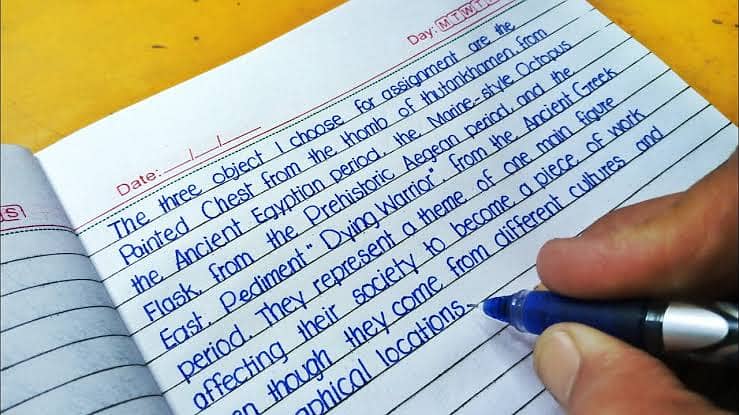 Day: M T W T
Date: __/__/__
The three object I choose for assignment are the
Painted Chest from the thomb of thutankhamen, from
the Ancient Egyptian period, the Marine-style Octopus
Flask, from the Prehistoric Aegean period, and the
East. Pediment "Dying Warrior", from the Ancient Greek
period. They represent a theme of one main figure
affecting their society to become a piece of work
n though they come from different cultures and
aphical locations.
S